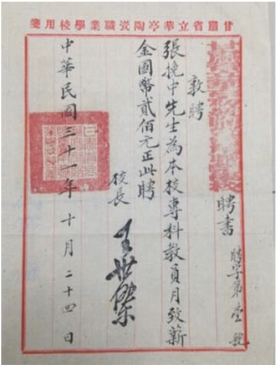 甘肅省立華亭陶瓷職業學校用箋
聘書
聘字第壹號
敦聘
張挽中先生為本校專科教員月致薪
金國幣貳佰元正此聘
校長
中華民國三十一年十月二十四日